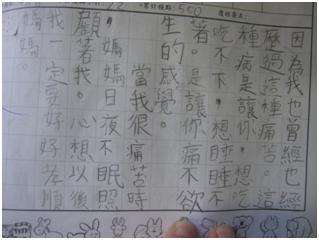 500
因為我也曾經也經
歷過這種痛苦。這
種病是讓你，想吃
吃不下，想睡睡不
著。是讓你痛不欲
生的感覺。
當我很痛苦時
，媽媽日夜不眠照
顧著我。心想以後
我一定要好好孝順
媽媽。